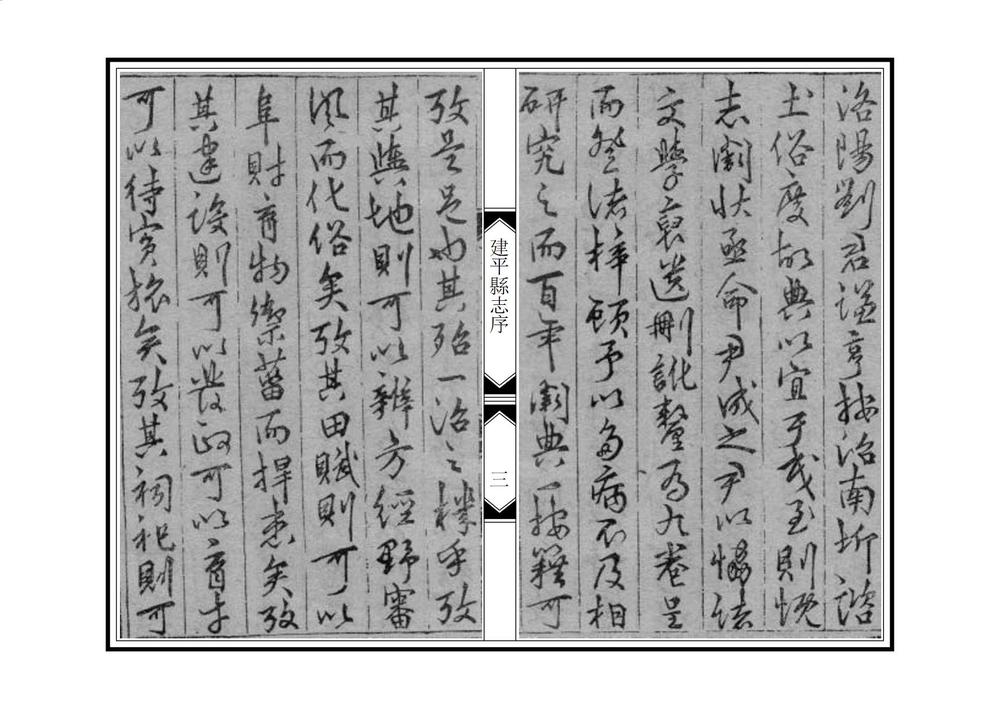 洛陽劉君謐亨按治南圻諮
土俗度故典以宜于民至則慨
志闕狀亟命尹成之尹以憣諸
文學裒遺刪訛釐為九卷呈
而登諸梓顧予以多病不及相
研究之而百年闕典一按籍可
攷是足也其殆一治之機乎攷
其輿地則可以辨方經野審
風而化俗矣攷其田賦則可以
阜財育物禦菑而捍患矣攷
其建設則可以發政可以育才
可以待賓旅矣攷其祠祀則可
建平縣志序
三